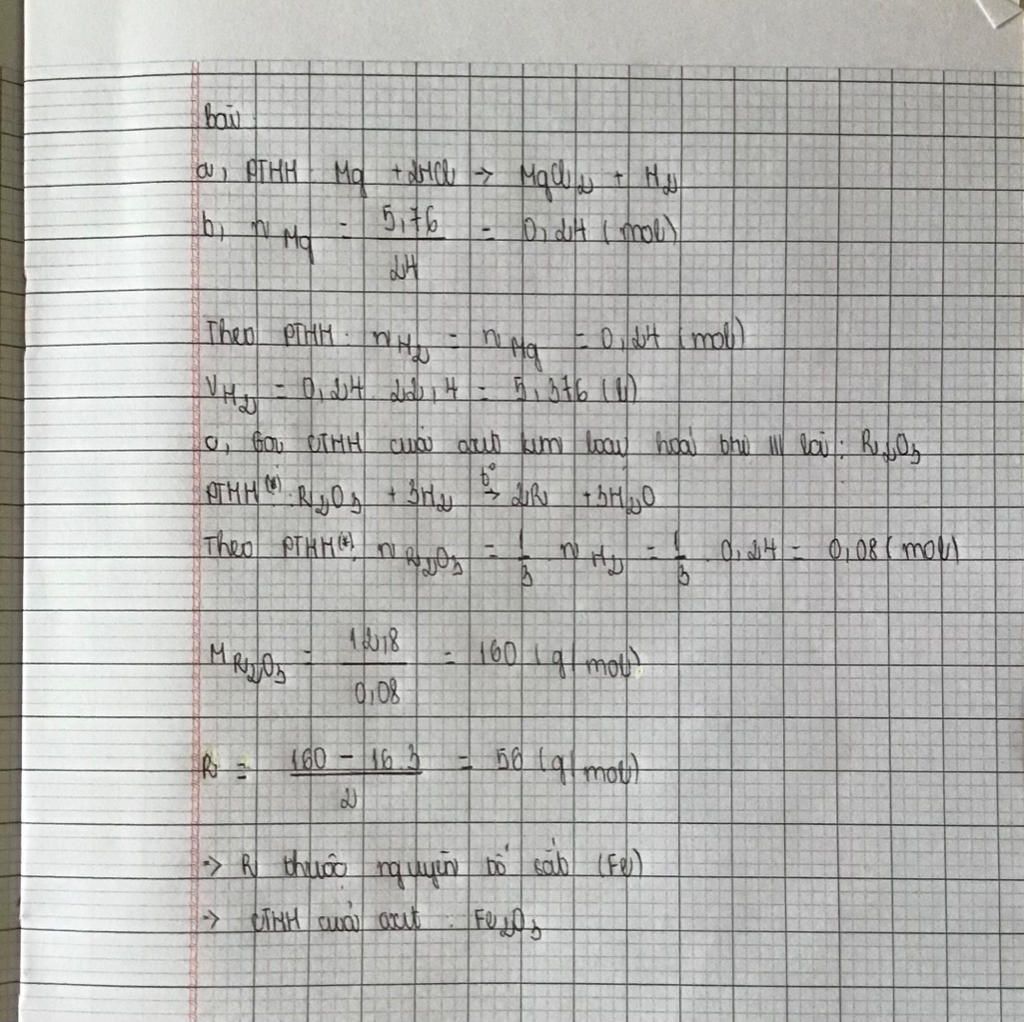 Bài
a, PTHH: Mg + 2HCl → MgCl₂ + H₂
b, n Mg = 5,76 / 24 = 0,24 (mol)
Theo PTHH: n H₂ = n Mg = 0,24 (mol)
V H₂ = 0,24 . 22,4 = 5,376 (l)
c, Gọi CTHH của oxit kim loại hoá trị III là: R₂O₃
PTHH(*): R₂O₃ + 3H₂ →(t°) 2R + 3H₂O
Theo PTHH(*): n R₂O₃ = 1/3 n H₂ = 1/3 . 0,24 = 0,08 (mol)
M R₂O₃ = 12,8 / 0,08 = 160 (g/mol)
R = 160 - 16.3 / 2 = 56 (g/mol)
→ R thuộc nguyên tố sắt (Fe)
→ CTHH của oxit: Fe₂O₃